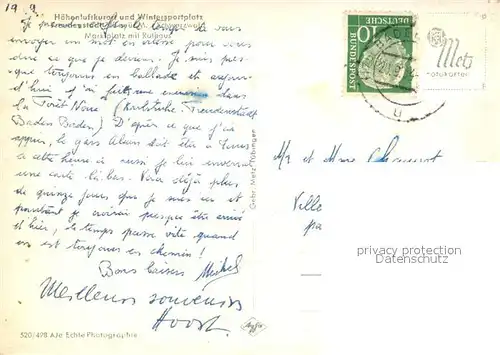 19.9.
Höhenluftkurort und Wintersportplatz
Freudenstadt
Marktplatz mit Kurhaus
Je profite enfin le temps de vous
envoyer un mot en retour pour vous
dire ce que je deviens. Je suis pres-
que toujours en ballade et aujour-
d'hui j'ai fait une excursion dans
la Forêt Noire (Karlsruhe. Freudenstadt
Baden Baden) D'après ce que j'ai
appris, le gars Alain doit être à Tunis
à cette heure-ci aussi je lui enverrai
une carte là-bas. Voici déjà plus
de quinze jours que je suis ici et
pourtant je croirais presque être arrivé
d'hier, le temps passe vite quand
on est toujours en chemin!
Bons baisers Michel
Meilleurs souvenirs
Horst
520/498 A.Je Echte Photographie
Agfa
Gebr. Metz, Tübingen
DEUTSCHE
BUNDESPOST
10
Metz
Mr et Mme
Ville
pa
privacy protection
Datenschutz